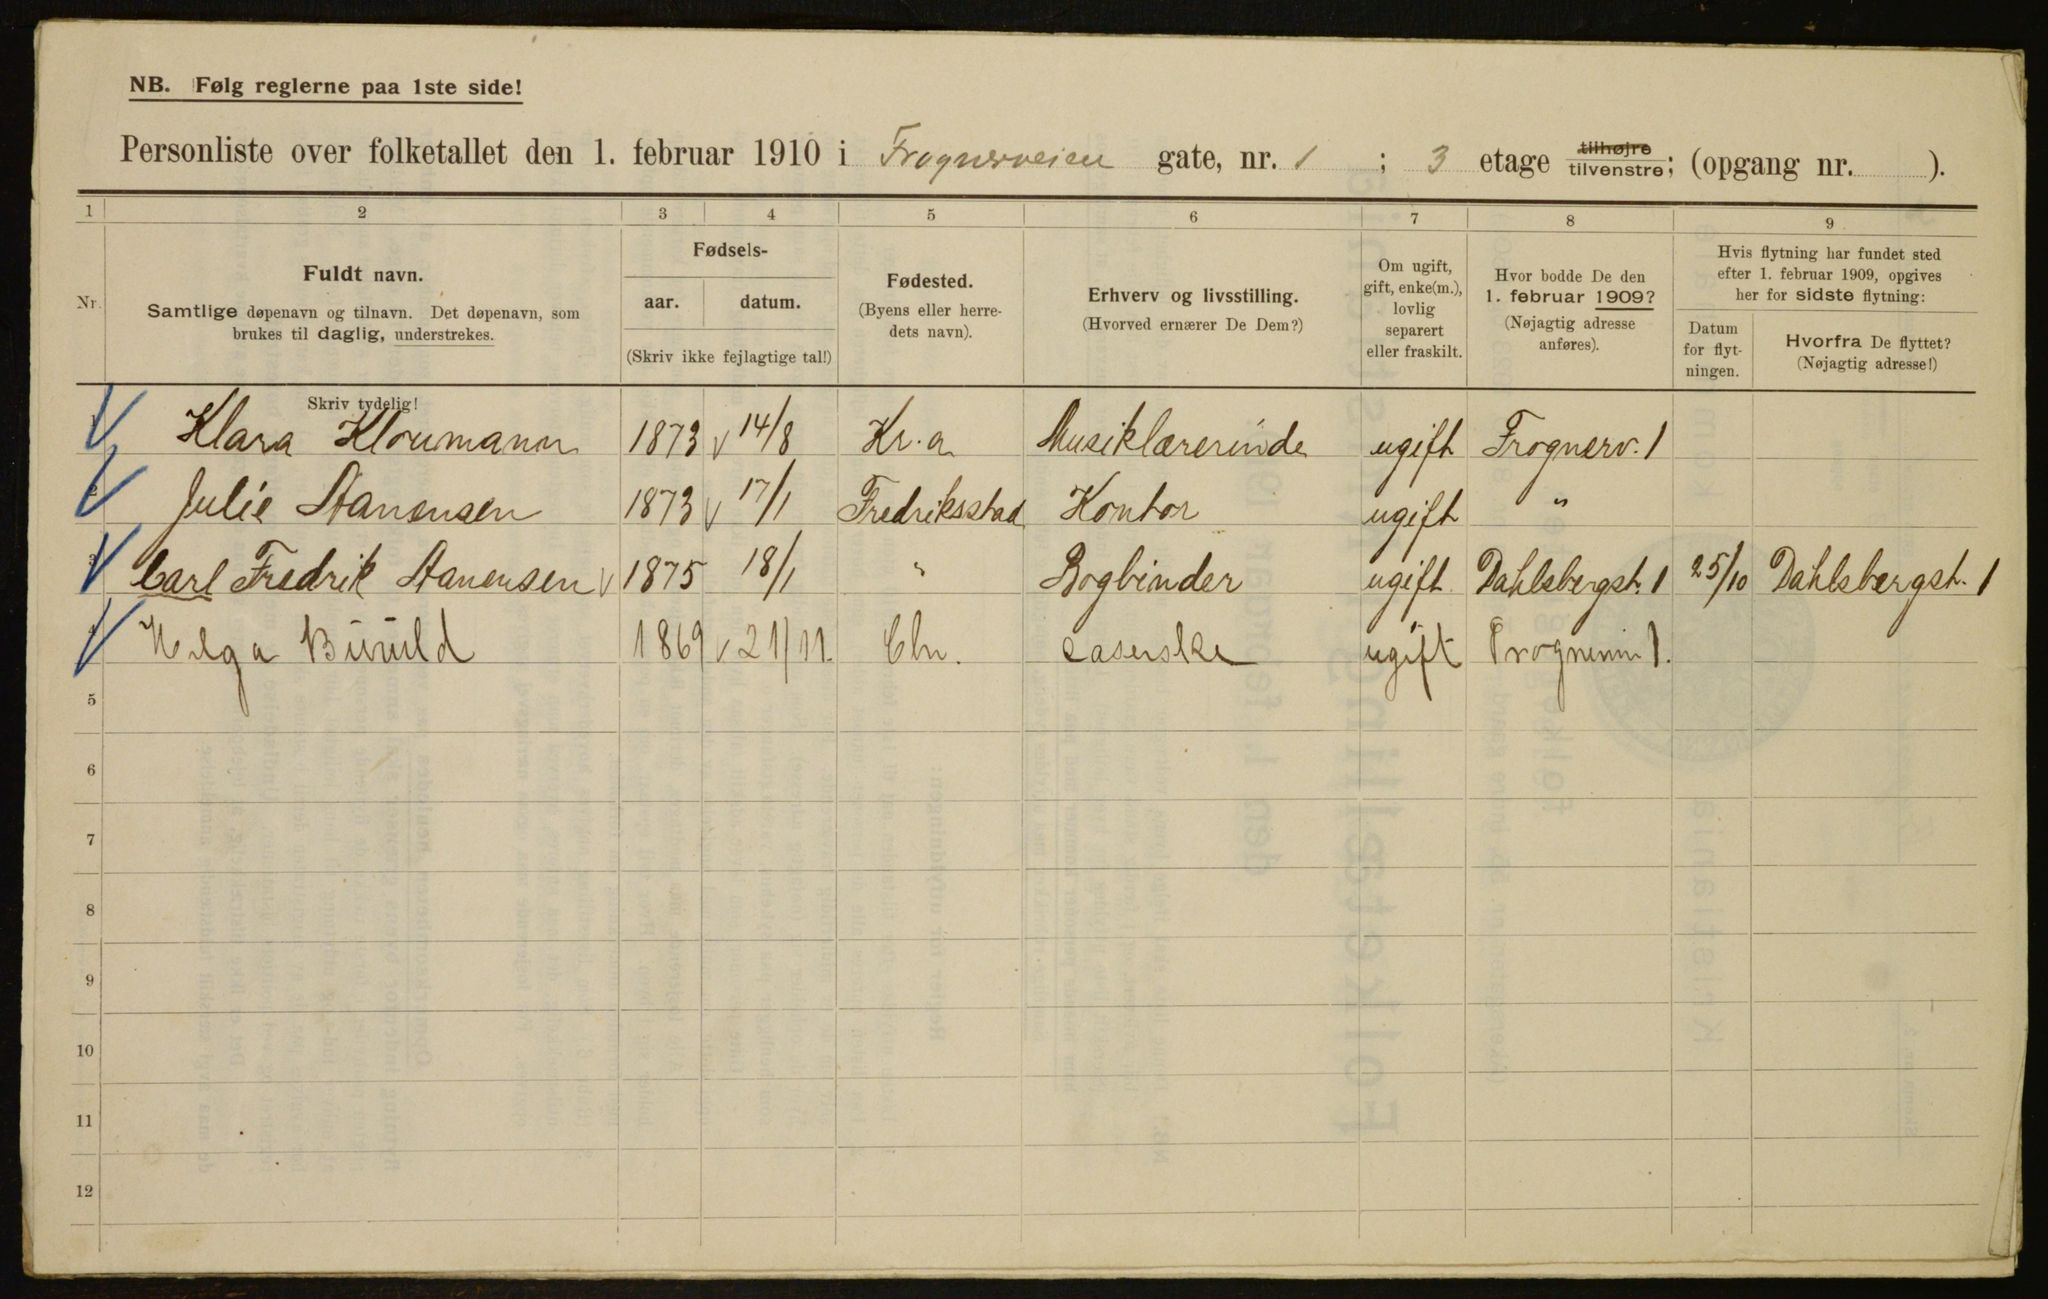 NB. Følg reglerne paa 1ste side!
Personliste over folketallet den 1. februar 1910 i Frognerveien gate, nr. 1 ; 3 etage tilhøjre tilvenstre; (opgang nr. ).
1 2 3 4 5 6 7 8 9
Nr. Fuldt navn. Samtlige døpenavn og tilnavn. Det døpenavn, som brukes til daglig, understrekes.
Fødsels- aar. datum. (Skriv ikke fejlagtige tal!)
Fødested. (Byens eller herredets navn).
Erhverv og livsstilling. (Hvorved ernærer De Dem?)
Om ugift, gift, enke(m.), lovlig separert eller fraskilt.
Hvor bodde De den 1. februar 1909? (Nøjagtig adresse anføres).
Hvis flytning har fundet sted efter 1. februar 1909, opgives her for sidste flytning:
Datum for flytningen. Hvorfra De flyttet? (Nøjagtig adresse!)
Skriv tydelig!
1 Klara Kloumann 1873 14/8 Kr.a Musiklærerinde ugift Frognerv. 1
2 Julie Stanensen 1873 17/1 Fredriksstad Kontor ugift "
3 Carl Fredrik Stanensen 1875 18/1 " Bogbinder ugift Dahlsbergst. 1 25/10 Dahlsbergst. 1
4 Helga 1869 21/11. Chr. ugift 1.
5
6
7
8
9
10
11
12